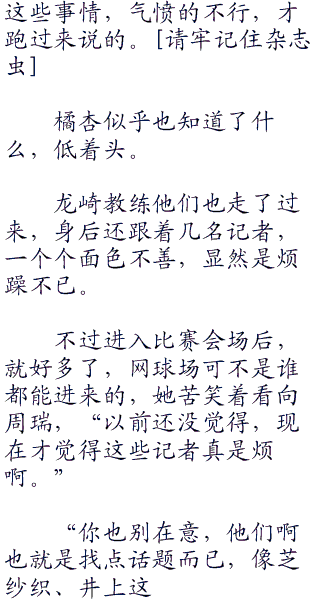 这些事情，气愤的不行，才
跑过来说的。[请牢记住杂志
虫]
橘杏似乎也知道了什
么，低着头。
龙崎教练他们也走了过
来，身后还跟着几名记者，
一个个面色不善，显然是烦
躁不已。
不过进入比赛会场后，
就好多了，网球场可不是谁
都能进来的，她苦笑着看向
周瑞，“以前还没觉得，现
在才觉得这些记者真是烦
啊。”
“你也别在意，他们啊
也就是找点话题而已，像芝
纱织、井上这